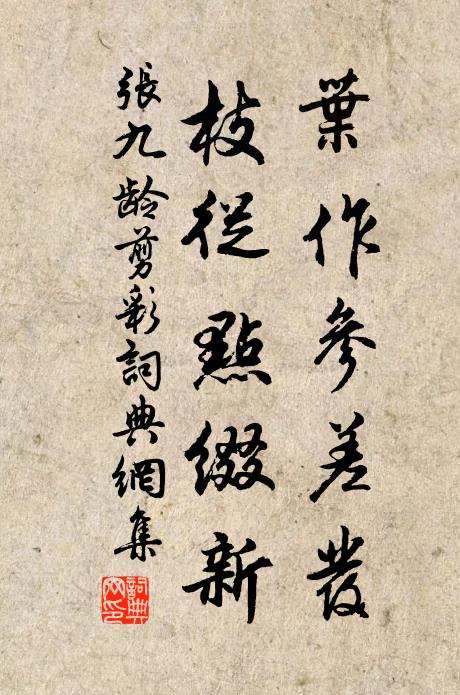 葉作參差發
枝從點綴新
張九齡剪彩詞典網集
詞典
网印